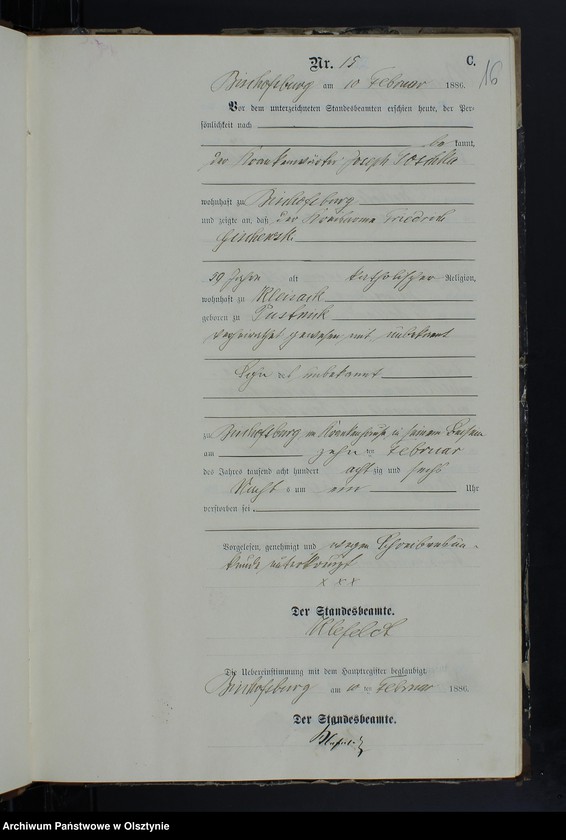 C.
Nr. 15
16
Bischofsburg am 10 Februar 1886.
Vor dem unterzeichneten Standesbeamten erschien heute, der Per-
sönlichkeit nach
be kannt,
der Krankenwärter Joseph
wohnhaft zu Bischofsburg
und zeigte an, daß der Friedrich
39 Jahre alt katholischer Religion,
wohnhaft zu
geboren zu Pustnik
verheirathet gewesen mit unbekannt
Sohn unbekannt
zu Bischofsburg im Krankenhause in seinem Beisein
am zehn ten Februar
des Jahres tausend acht hundert acht zig und sechs
Nachts um ein Uhr
verstorben sei.
Vorgelesen, genehmigt und wegen Schreibensun-
kunde unterkreuzt
x x x
Der Standesbeamte.
Klefeldt
Die Uebereinstimmung mit dem Hauptregister beglaubigt.
Bischofsburg am 10 ten Februar 1886.
Der Standesbeamte.
Klefeldt
Archiwum Państwowe w Olsztynie